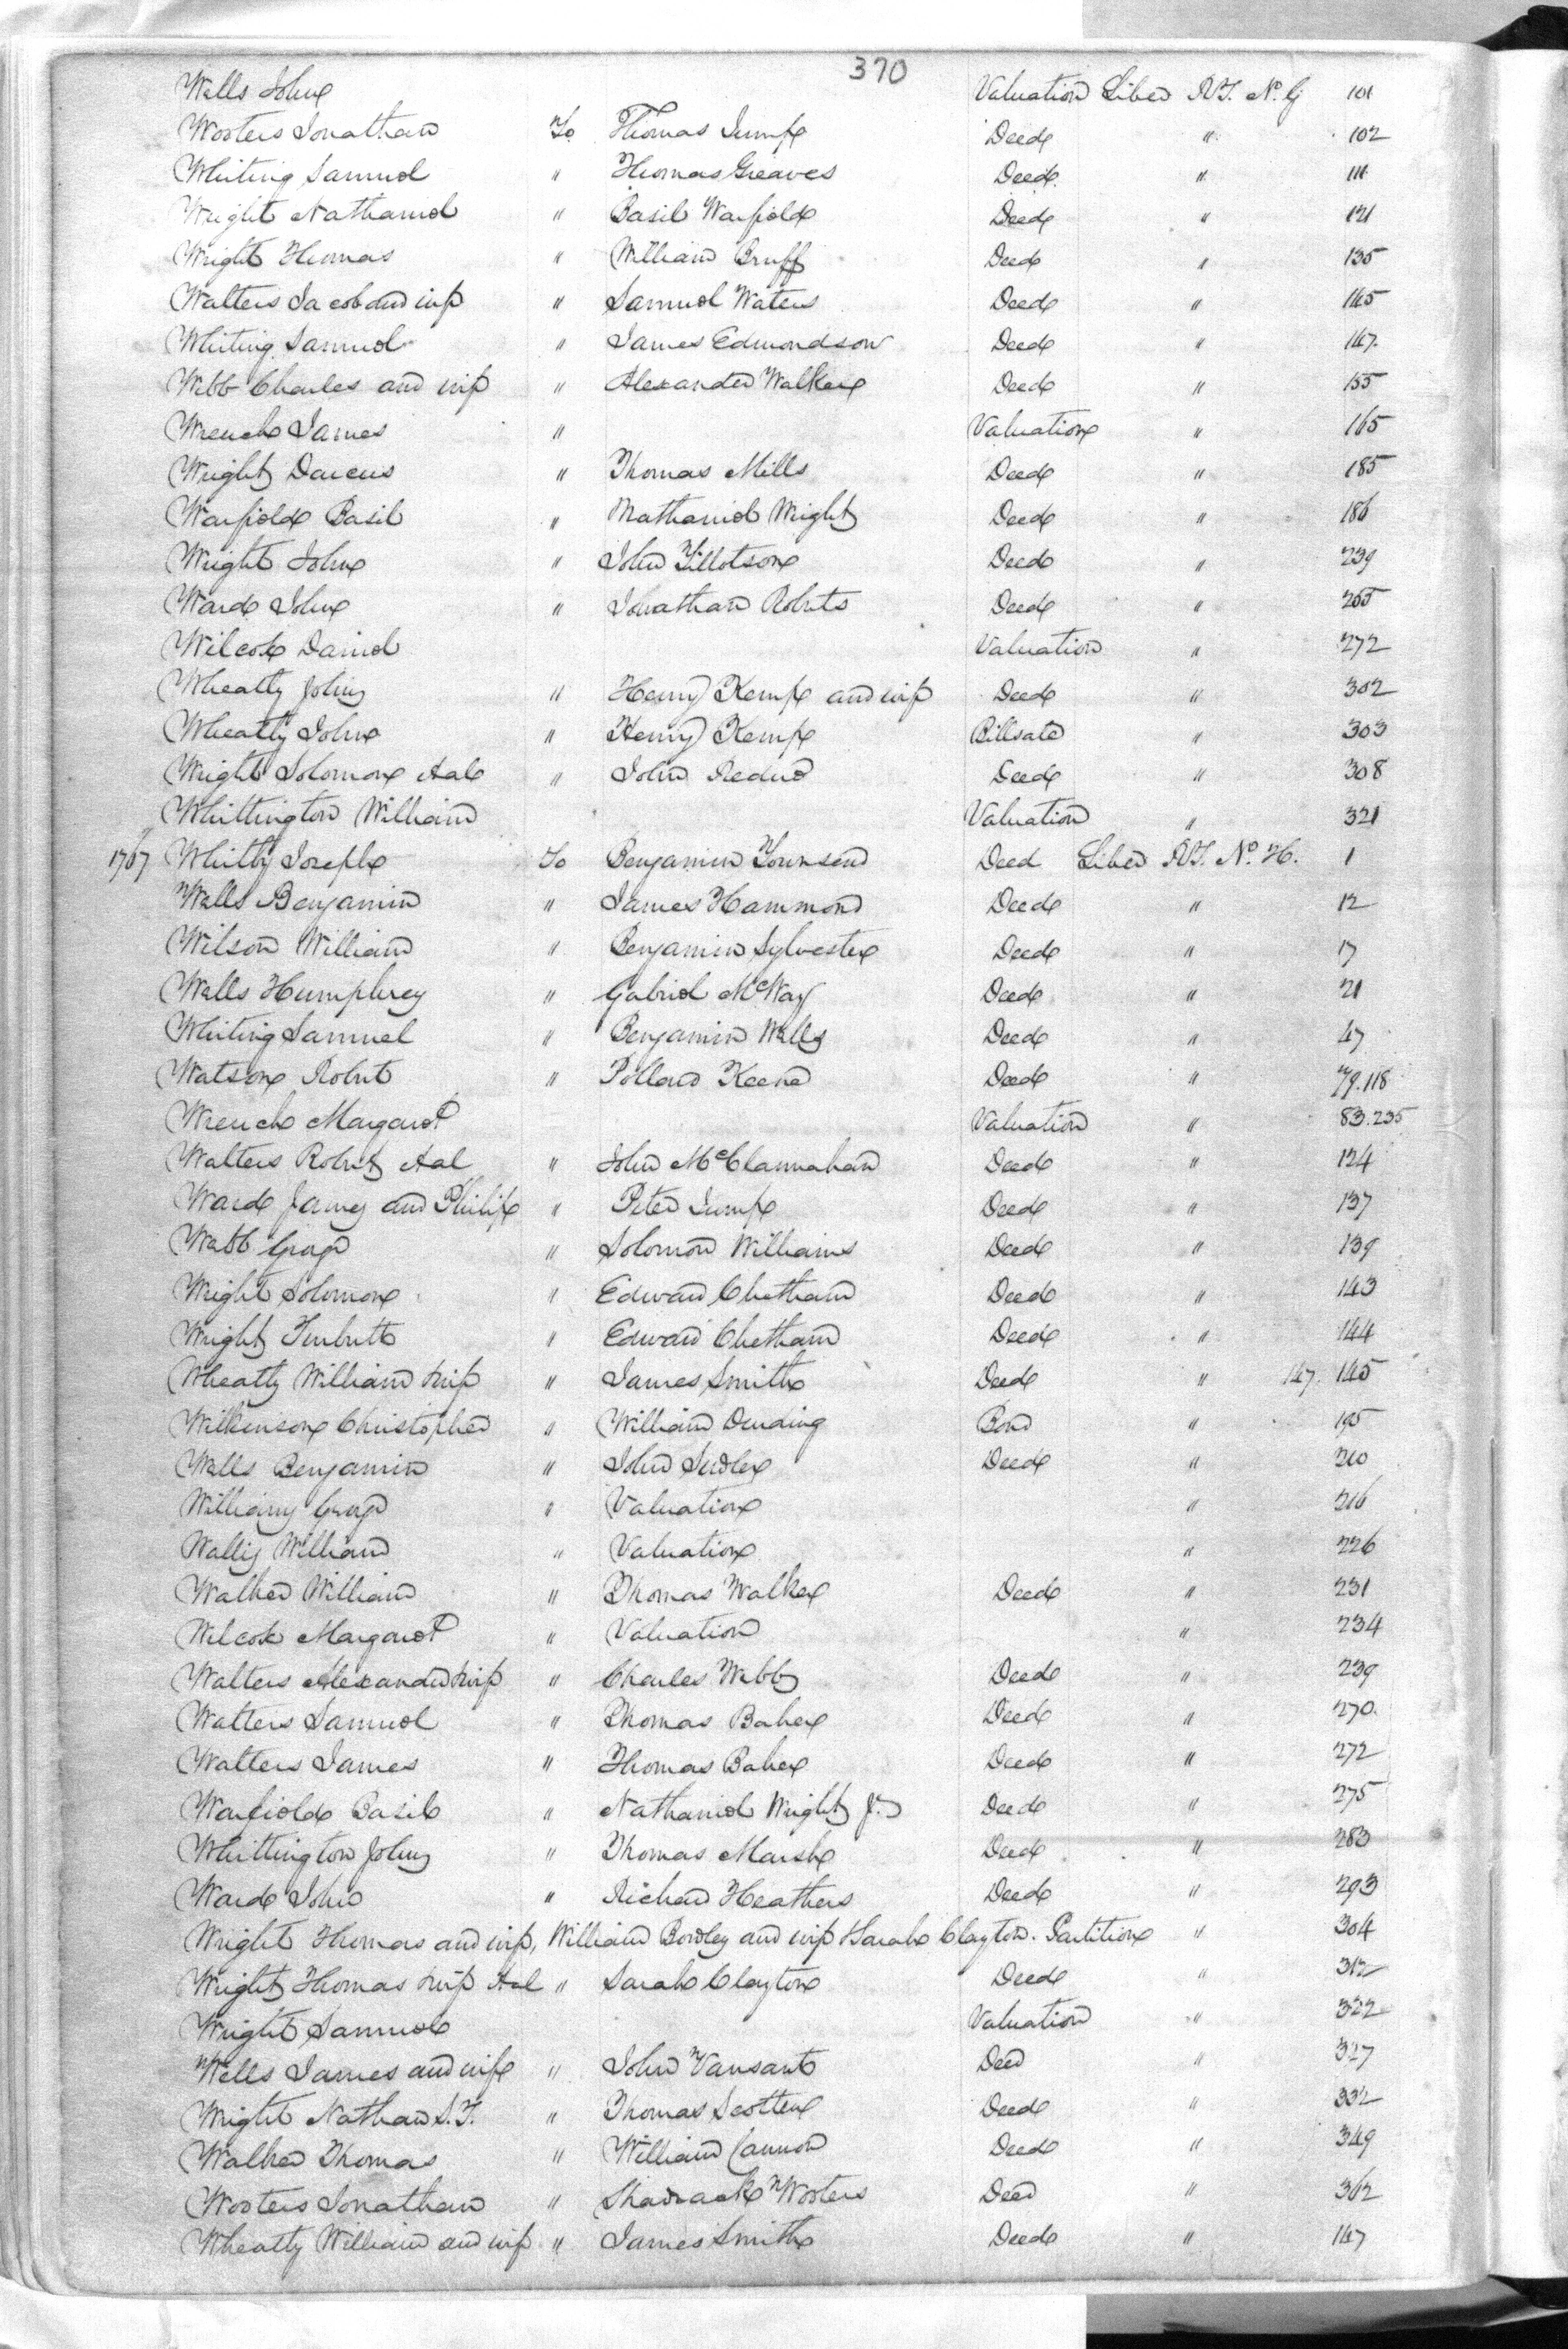 370
Wells John Valuation Liber R.T. No. G 101
Wooters Jonathan To Thomas Jump Deed " 102
Whiting Samuel " Thomas Greaves Deed " 111
Wright Nathaniel " Basil Warfield Deed " 121
Wright Thomas " William Bruff Deed " 135
Walters Jacob and wife " Samuel Waters Deed " 145
Whiting Samuel " James Edmondson Deed " 147.
Webb Charles and wife " Alexander Walker Deed " 155
Wrench James " Valuation " 165
Wright Darcus " Thomas Mills Deed " 185
Warfield Basil " Nathaniel Wright Deed " 186
Wright John " John Tillotson Deed " 239
Ward John " Jonathan Roberts Deed " 265
Wilcox Daniel Valuation " 272
Wheatly John " Henry Kemp and wife Deed " 302
Wheatly John " Henry Kemp Billsale " 303
Wright Solomon etal " John Deed " 308
Whittington William Valuation " 321
1767 Whitby Joseph To Benjamin Townsend Deed Liber R.T. No. H. 1
Wells Benjamin " James Hammond Deed " 12
Wilson William " Benjamin Sylvester Deed " 17
Wells Humphrey " Gabriel McWay Deed " 21
Whiting Samuel " Benjamin Wells Deed " 47
Watson Robert " Pollard Keene Deed " 79.118
Wrench Margaret Valuation " 83.235
Walters Robert etal " John McClannahan Deed " 124
Ward James and Philip " Peter Jump Deed " 137
Webb George " Solomon Williams Deed " 139
Wright Solomon " Edward Chetham Deed " 143
Wright Turbutt " Edward Chetham Deed " 144
Wheatly William & wife " James Smith Deed " 147. 145
Wilkinson Christopher " William Deeding Bond " 195
Wells Benjamin " John Sudler Deed " 210
Williams George " Valuation " 216
Wallis William " Valuation " 226
Walker William " Thomas Walker Deed " 231
Wilcox Margaret " Valuation " 234
Walters Alexander & wife " Charles Webb Deed " 239
Watters Samuel " Thomas Baker Deed " 270.
Walters James " Thomas Baker Deed " 272
Warfield Basil " Nathaniel Wright Jr. Deed " 275
Whittington John " Thomas Marsh Deed " 283
Ward John " Richard Heathers Deed " 293
Wright Thomas and wife, William Bordley and wife & Sarah Clayton. Partition " 304
Wright Thomas & wife etal " Sarah Clayton Deed " 312
Wright Samuel Valuation " 322
Wells James and wife " John Vansant Deed " 327
Wright Nathan S.T. " Thomas Scotten Deed " 332
Walker Thomas " William Cannon Deed " 349
Wooters Jonathan " Shadrack Wooters Deed " 362
Wheatly William and wife " James Smith Deed " 147